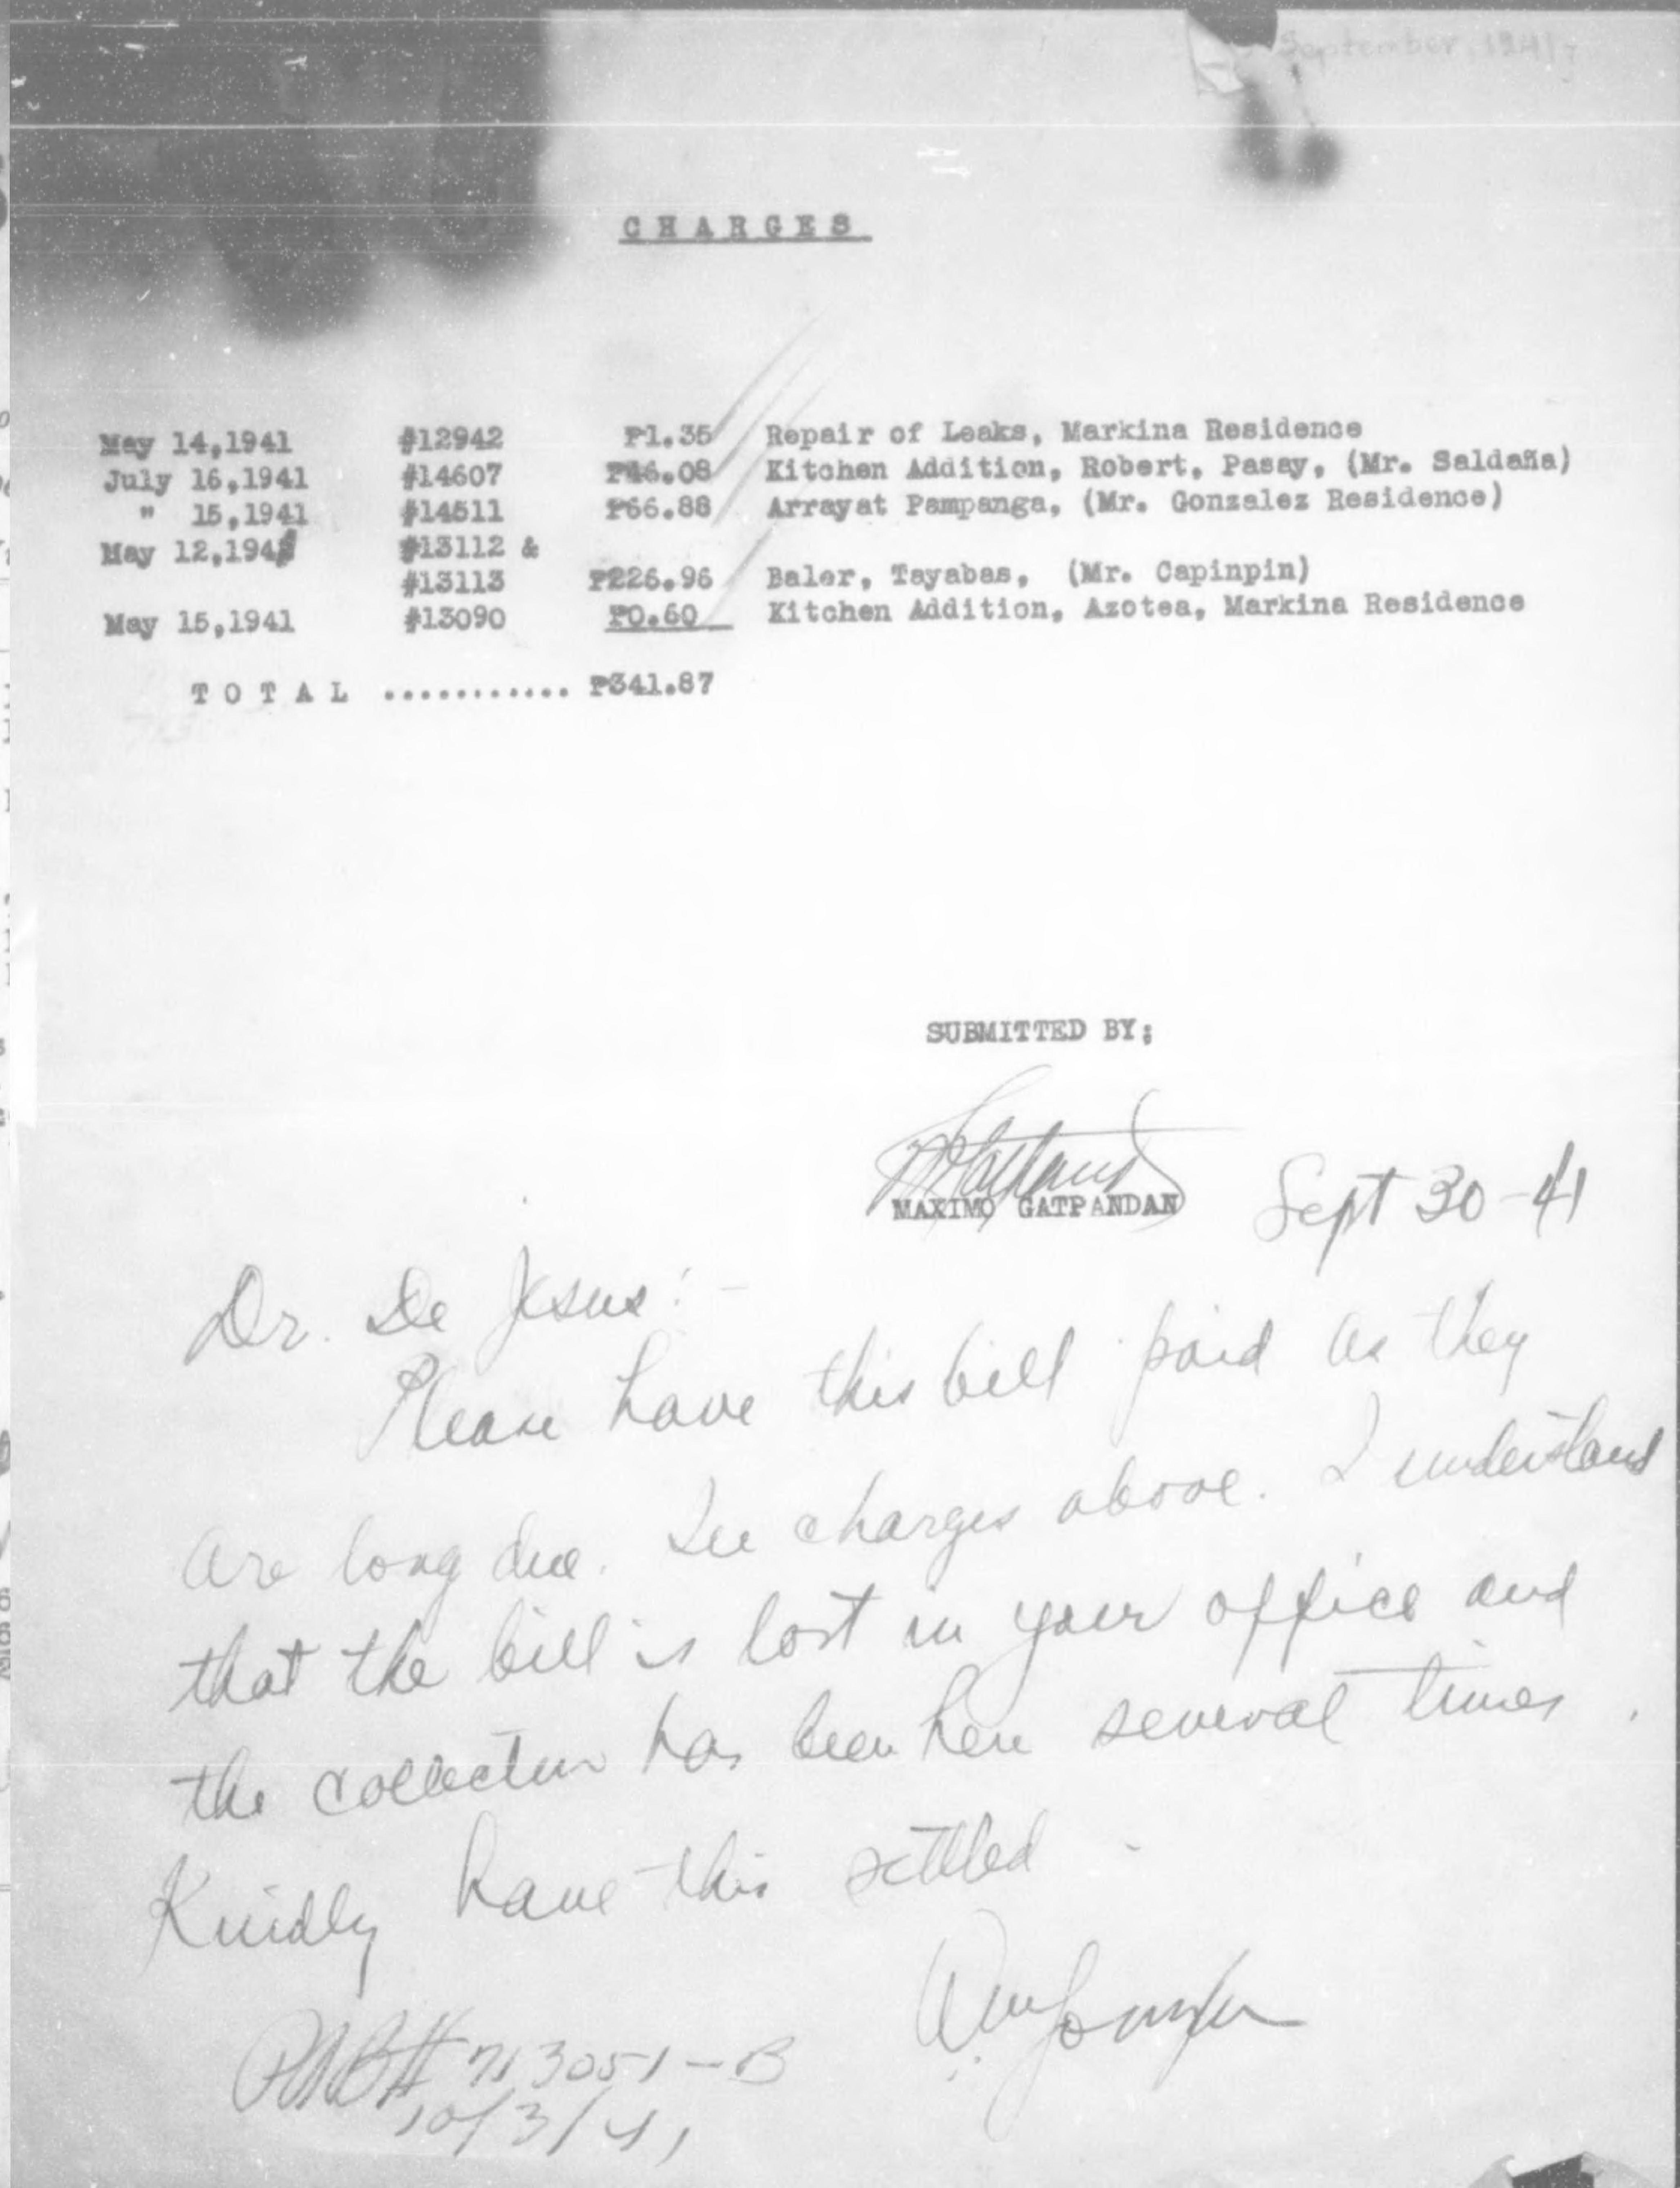 September, 1941
CHARGES
May 14,1941 #12942 ₱1.35 Repair of Leaks, Markina Residence
July 16,1941 #14607 ₱46.08 Kitchen Addition, Robert, Pasay, (Mr. Saldaña)
" 15,1941 #14511 ₱66.88 Arrayat Pampanga, (Mr. Gonzalez Residence)
May 12,1941 #13112 &
#13113 ₱226.96 Baler, Tayabas, (Mr. Capinpin)
May 15,1941 #13090 ₱0.60 Kitchen Addition, Azotea, Markina Residence
TOTAL ........... ₱341.87
SUBMITTED BY;
MAXIMO GATPANDAN
Sept 30-41
Dr. De Jesus:-
Please have this bill paid as they
are long due. See charges above. I understand
that the bill is lost in your office and
the collector has been here several times.
Kindly have this settled.
PNB# 713051-B
10/3/41